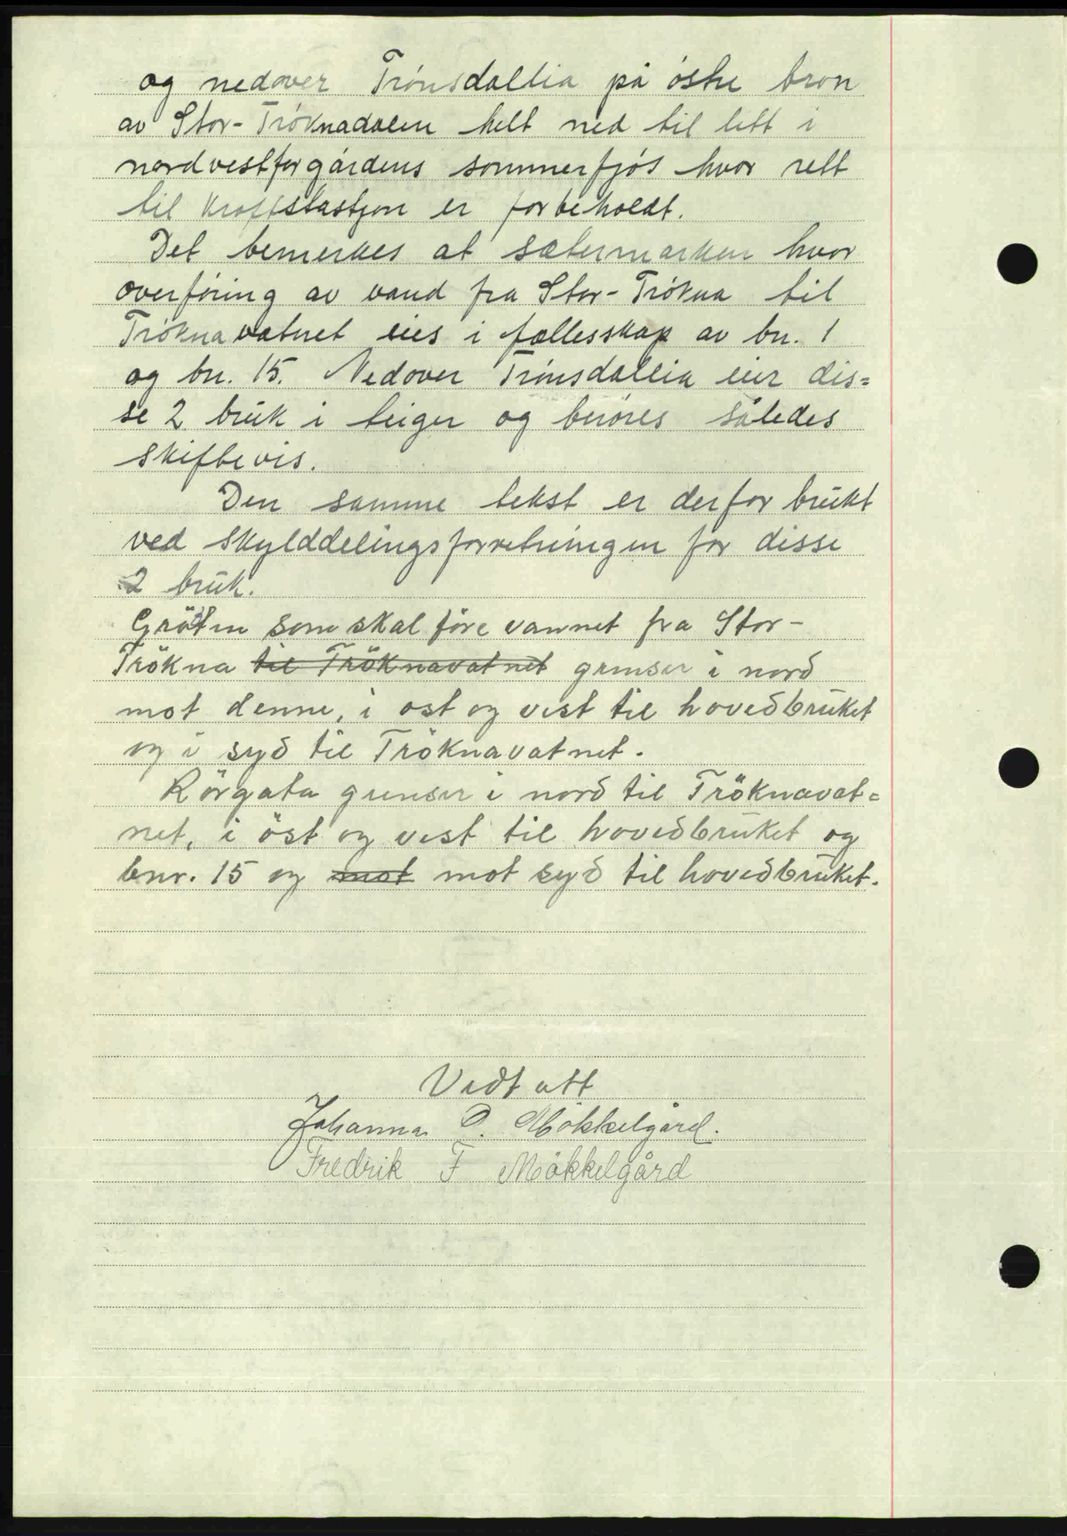 og nedover Trönsdallia på östre bron
av Stor-Tröknadalen helt ned til litt i
nordvest for gårdens sommerfjös hvor rett
til kraftstastjon er forbeholdt.
Det bemerkes at sætermarken hvor
overföring av vand fra Stor-Trökna til
Tröknavatnet eies i fællesskap av bn. 1
og bn. 15. Nedover Trönsdallia eier dis=
se 2 bruk i teiger og beröres således
skiftevis.
Den samme tekst er derfor brukt
ved skylddelingsforretningen for disse
2 bruk.
Gröften som skal före vannet fra Stor-
Trökna til Tröknavatnet grenser i nord
mot denne, i ost og vest til hovedbruket
og i syd til Tröknavatnet.
Rörgata grenser i nord til Tröknavat=
net, i öst og vest til hovedbruket og
bnr. 15 og mot mot syd til hovedbruket.
Vedtatt
Johanna O. Mökkelgård.
Fredrik F Mökkelgård